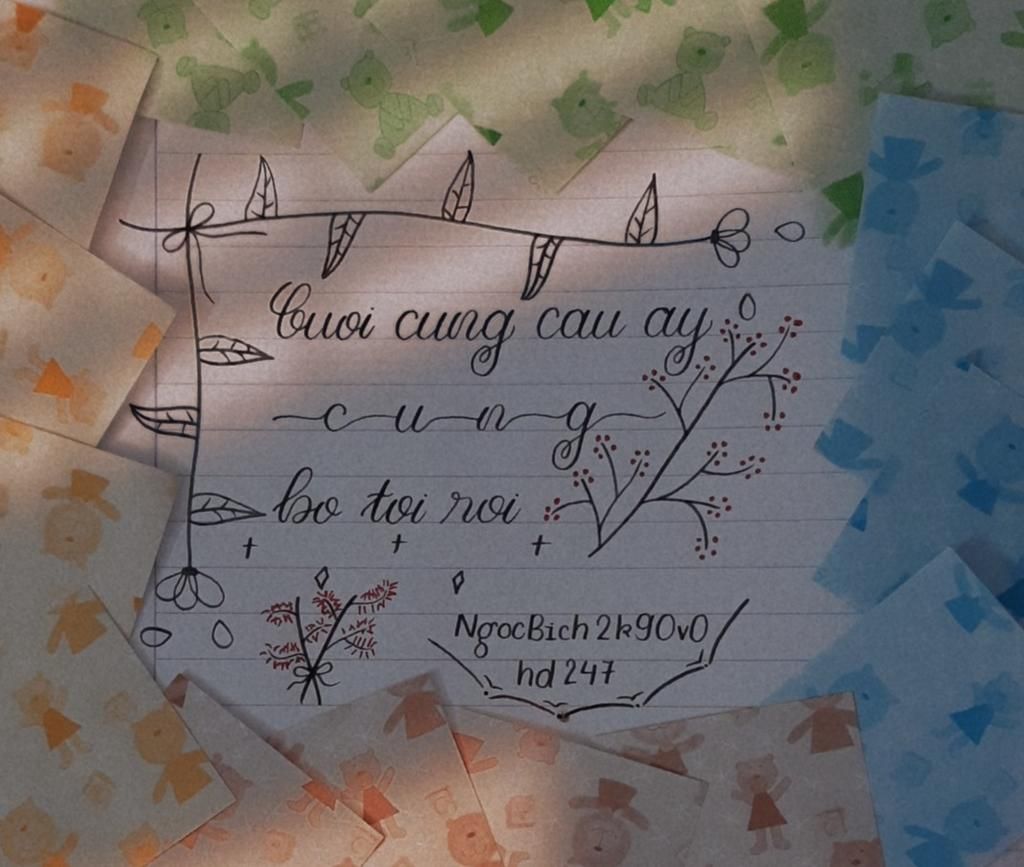 Cuoi cung cau ay
cung
bo toi roi
NgocBich2k9OvO
hd 247